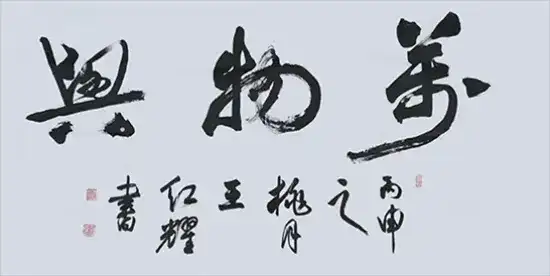 萬物興
丙申之桃月王红耀書